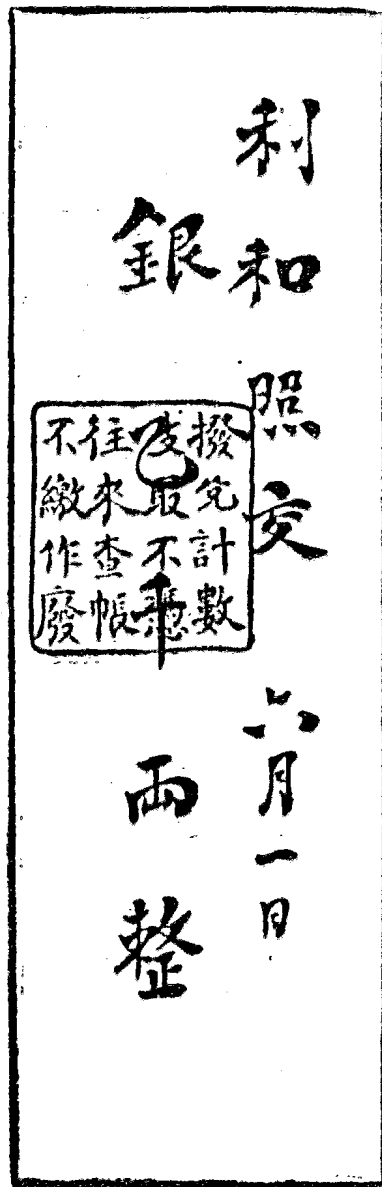 利和照交 六月一日
銀千兩整
撥兌計數
取不憑
往來查帳
不繳作廢